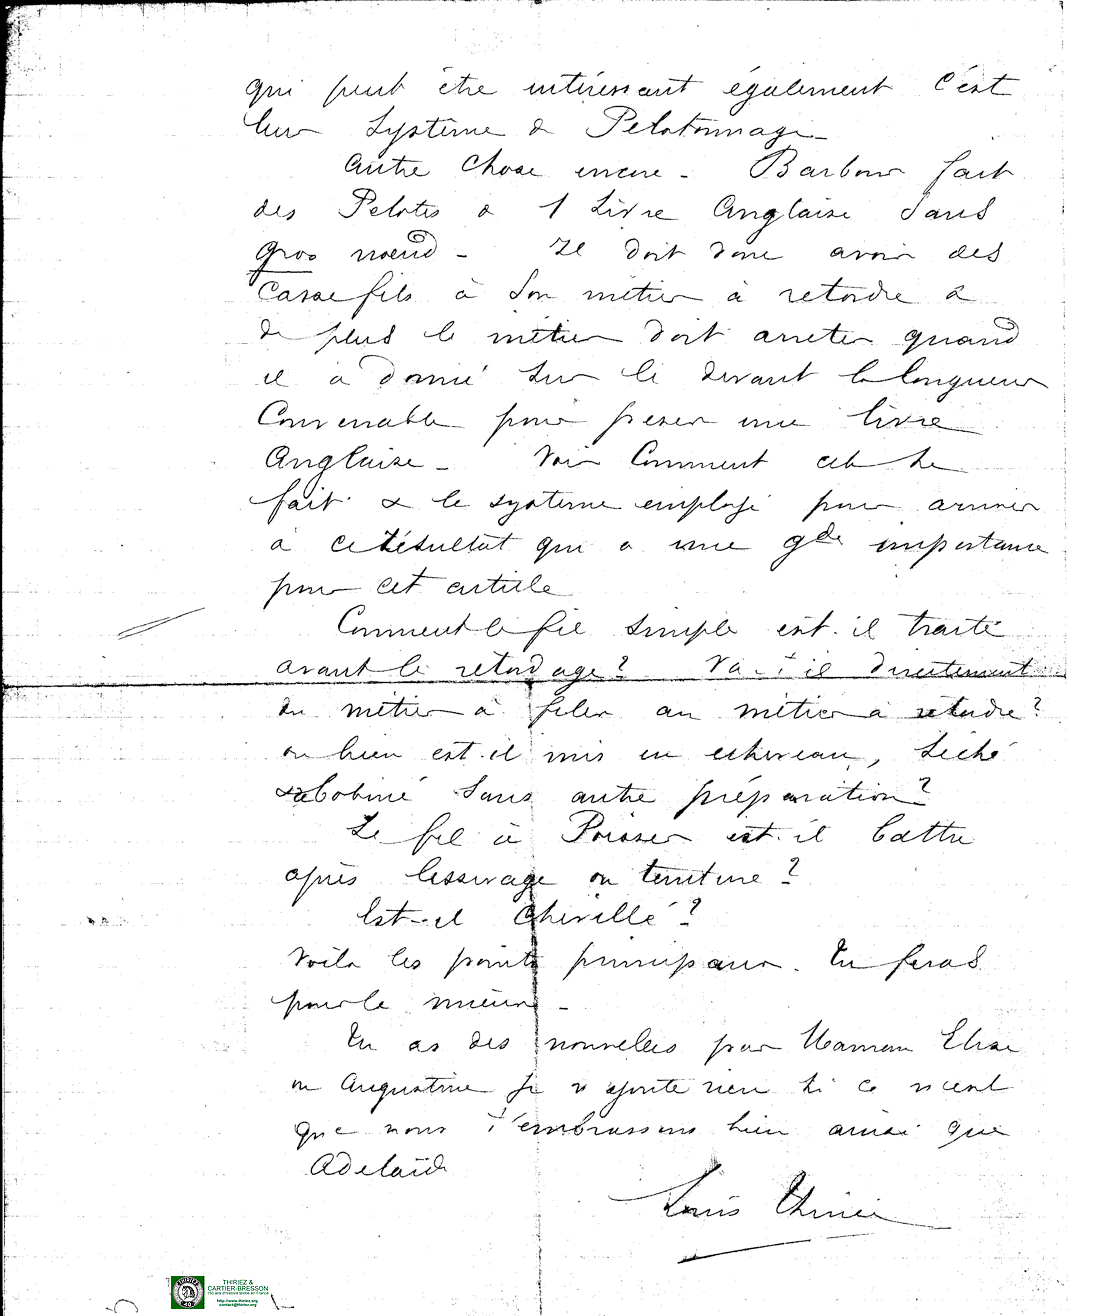 qui peut être intéressant également c'est
leur système de Pelotonnage
autre chose encore - Barbour fait
des Pelotes de 1 Livre Anglaise sans
gros nœud - Il doit donc avoir des
Casse fils à son métier à retordre &
de plus le métier doit arreter quand
il a donné sur le devant la longueur
Convenable pour peser une livre
Anglaise - Voir Comment cela se
fait & le système employé pour arriver
à ce résultat qui a une gde importance
pour cet article
Comment le fil simple est-il traité
avant le retordage? Va-t-il directement
du métier à filer au métier à retordre?
ou bien est-il mis en echeveau, séché
& bobiné sans autre préparation?
Le fil à Poisser est-il battu
après lessivage ou teinture?
Est-il chevillé?
Voilà les points principaux. Tu feras
pour le mieux -
Tu as des nouvelles par Maman Elise
ou Augustine je n'ajoute rien si ce n'est
que nous t'embrassons bien ainsi que
Adelaïde
Louis Thiriez
THIRIEZ &
CARTIER-BRESSON
150 ans d'histoire textile en France
http://www.thiriez.org
contact@thiriez.org